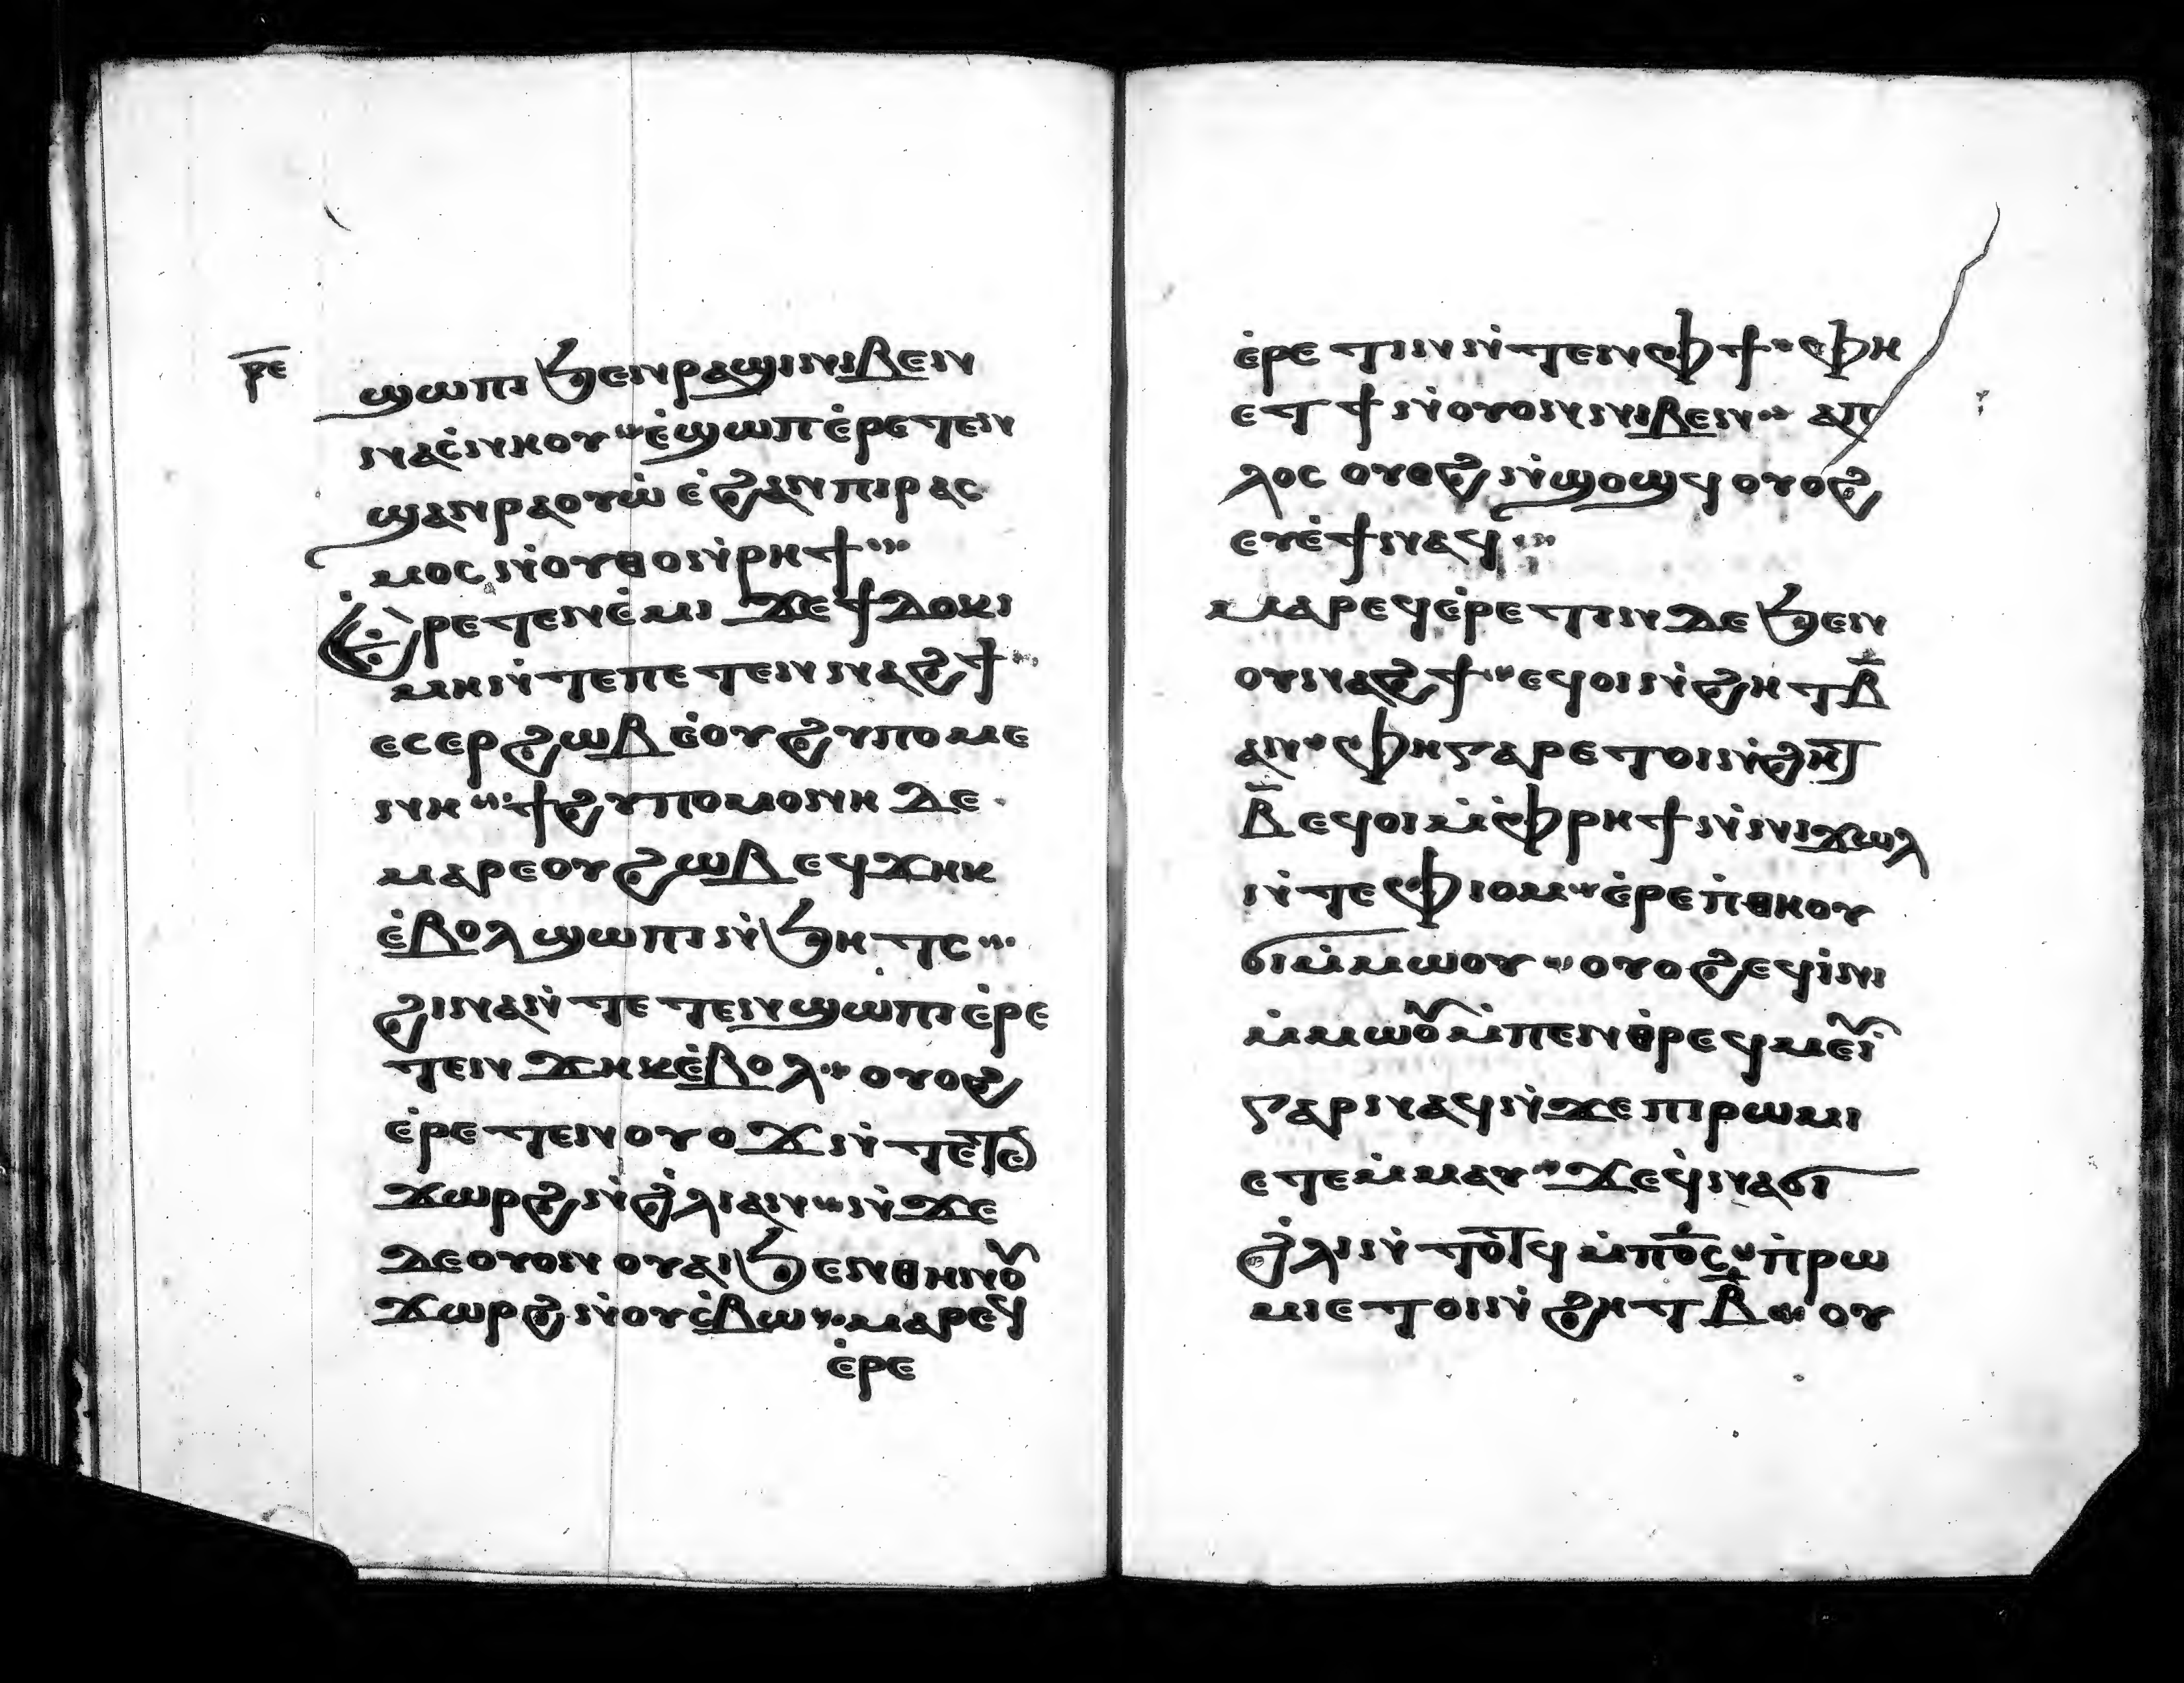 ⲣ̅ⲉ
ϣⲱⲡⲓ ϧⲉⲛ ⲣⲁϣⲓ ⲛⲓⲃⲉⲛ
ⲛⲁⲥ̇ⲛⲏⲟⲩ ⲉ̇ϣⲱⲡ ⲉ̇ⲣⲉⲧⲉⲛ
ϣⲁⲛⲣⲁⲟⲩⲱ̇ ⲉ̇ϩⲁⲛⲡⲓⲣⲁⲥ
ⲙⲟⲥ ⲛ̇ⲟⲩⲑⲟⲛ̇ⲣⲏϯ
Ⲉ̇ⲣⲉⲧⲉⲛⲉ̇ⲙⲓ ϫⲉ ϯⲇⲟⲕⲓ
ⲙⲏ ⲛ̇ⲧⲉ ⲡⲉⲧⲉⲛⲛⲁϩϯ
ⲉⲥⲉⲣϩⲱⲃ ⲉ̇ⲟⲩϩⲩⲡⲟⲙⲉ
ⲛⲏ ϯϩⲩⲡⲟⲙⲟⲛⲏ ⲇⲉ
ⲙⲁⲣⲉ ⲟⲩϩⲱⲃ ⲉϥϫⲏⲕ
ⲉ̇ⲃⲟⲗ ϣⲱⲡⲓ ⲛ̇ϧⲏⲧⲥ
ϩⲓⲛⲁ ⲛ̇ⲧⲉⲧⲉⲛϣⲱⲡⲓ ⲉ̇ⲣⲉ
ⲧⲉⲛϫⲏⲕ ⲉ̇ⲃⲟⲗ ⲟⲩⲟϩ
ⲉ̇ⲣⲉⲧⲉⲛⲟⲩⲟϫ ⲛ̇ⲧⲉⲧⲉ̅ⲛ̅
ϫⲱⲣϩ ⲛ̇ϩ̇ⲗⲓ ⲁⲛ ⲛ̇ϫⲉ
ⲇⲉ ⲟⲩⲟⲛ ⲟⲩⲁⲓ ϧⲉⲛ ⲑⲏⲛⲟⲩ
ϫⲱⲣϩ ⲛ̇ⲟⲩⲥ̇ⲃⲱ ⲙⲁⲣⲉϥ
ⲉ̇ⲣⲉ
ⲉ̇ⲣⲉⲧⲓⲛ ⲛ̇ⲧⲉⲛ ⲫϯ ⲫⲏ
ⲉⲧϯ ⲛ̇ⲟⲩⲟⲛ ⲛⲓⲃⲉⲛ ⲁⲡ
ⲗⲟⲥ ⲟⲩⲟϩ ⲛ̇ϣⲟϣϥ ⲟⲩⲟϩ
ⲉⲩⲉ̇ϯ ⲛⲁϥ
ⲙⲁⲣⲉϥⲉ̇ⲣⲉⲧⲓⲛ ⲇⲉ ϧⲉⲛ
ⲟⲩⲛⲁϩϯ ⲉϥⲟⲓ ⲛ̇ϩⲏⲧ ⲃ̅
ⲁⲛ ⲫⲏ ⲅⲁⲣ ⲉⲧⲟⲓ ⲛ̇ϩⲏⲧ
ⲃ̅ ⲉϥⲟⲓ ⲙ̇ⲫ̇ⲣⲏϯ ⲛ̇ⲛⲓϫⲱⲗ
ⲛ̇ⲧⲉ ⲫⲓⲟⲙ ⲉ̇ⲣⲉ ⲡ̇ⲑⲏⲟⲩ
ϭⲓ ⲙ̇ⲙⲱⲟⲩ ⲟⲩⲟϩ ⲉϥⲓ̇ⲛⲓ
ⲙ̇ⲙⲱⲟⲩ ⲙ̇ⲡⲉⲛⲑ̇ⲣⲉϥⲙⲉⲩⲓ̇
ⲅⲁⲣ ⲛⲁϥ ⲛ̇ϫⲉ ⲡⲓⲣⲱⲙⲓ
ⲉⲧⲉⲙ̇ⲙⲁⲩ ϫⲉ ϥ̇ⲛⲁϭⲓ
ϩ̇ⲗⲓ ⲛ̇ⲧⲟ̅ⲧ̅ϥ ⲙ̇ⲡⲟ̅ⲥ̅ ⲡ̇ⲣⲱ
ⲙⲓ ⲉⲧⲟⲓ ⲛ̇ϩⲏⲧ ⲃ̅ ⲟⲩ